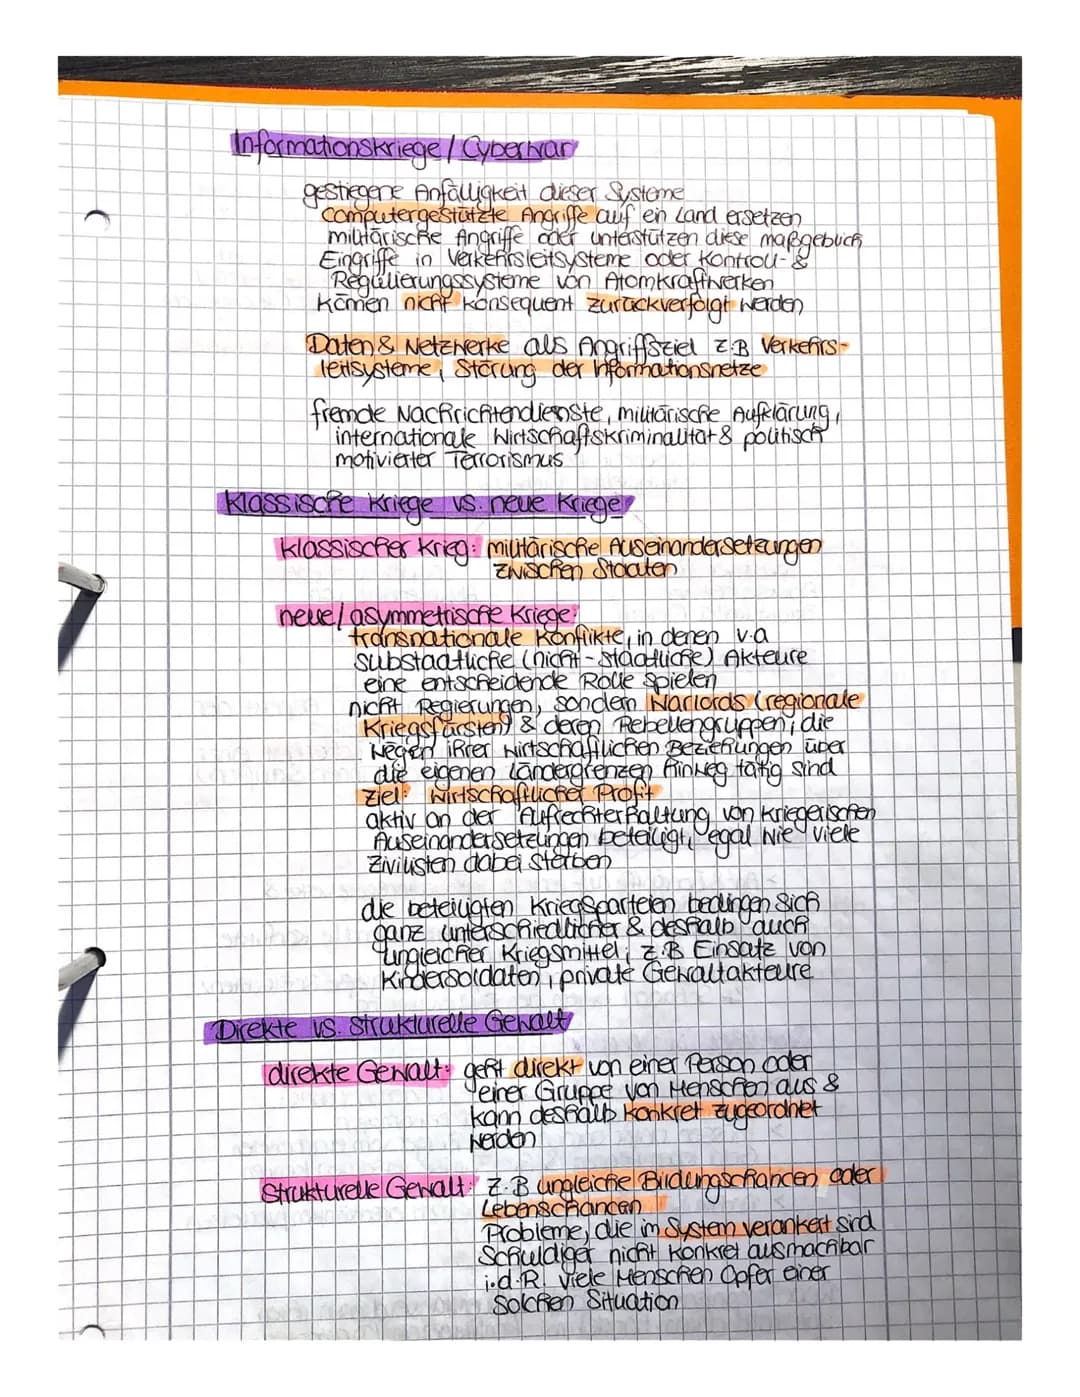 Informationskriege / Cyberwar
gestiegene Anfälligkeit dieser Systeme
Computergestützte Angriffe auf ein Land ersetzen
militärische Angriffe oder unterstützen diese maßgeblich
Eingriffe in Verkehrsleitsysteme oder Kontroll- &
Regulierungssysteme von Atomkraftwerken
können nicht konsequent zurückverfolgt werden
Daten & Netzwerke als Angriffsziel z.B Verkehrs-
leitsysteme, Störung der Informationsnetze
fremde Nachrichtendienste, militärische Aufklärung,
internationale Wirtschaftskriminalität & politisch
motivierter Terrorismus
Klassische Kriege vs. neue Kriege
klassischer Krieg: militärische Auseinandersetzungen
zwischen Staaten
neue / asymmetrische Kriege:
transnationale Konflikte, in denen v.a
substaatliche (nicht-staatliche) Akteure
eine entscheidende Rolle spielen
nicht Regierungen, sondern Warlords (regionale
Kriegsfürsten) & deren Rebellengruppen, die
wegen ihrer wirtschaftlichen Beziehungen über
die eigenen Ländergrenzen hinweg tätig sind
Ziel: wirtschaftlicher Profit
aktiv an der Aufrechterhaltung von kriegerischen
Auseinandersetzungen beteiligt, egal wie viele
Zivilisten dabei sterben
die beteiligten Kriegsparteien bedingen sich
ganz unterschiedlicher & deshalb auch
ungleicher Kriegsmittel; z.B Einsatz von
Kindersoldaten, private Gewaltakteure
Direkte vs. strukturelle Gewalt
direkte Gewalt: geht direkt von einer Person oder
einer Gruppe von Menschen aus &
kann deshalb konkret zugeordnet
werden
Strukturelle Gewalt: z.B ungleiche Bildungschancen oder
Lebenschancen
Probleme, die im System verankert sind
Schuldiger nicht konkret ausmachbar
i.d.R. viele Menschen Opfer einer
solchen Situation